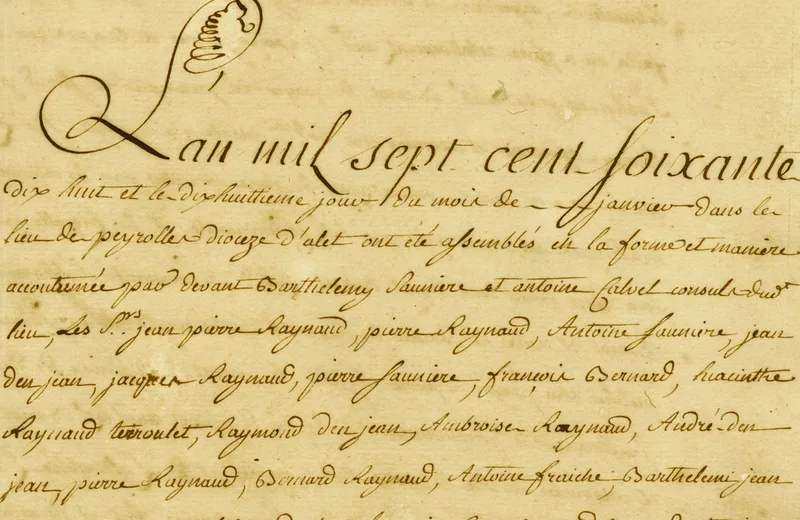 L'an mil sept cent soixante
dix huit et le dixhuittieme jour du mois de janvier dans le
lieu de peyrolles dioceze d'alet ont été assemblés en la forme et maniere
accoutumée par devant Barthelemy Sauniere et antoine Calvet consuls dudt
lieu, Les Srs jean pierre Raynaud, pierre Raynaud, Antoine Sauniere, jean
den jean, jacques Raynaud, pierre Sauniere, françois Bernard, hiacinthe
Raynaud terroulet, Raymond den jean, Ambroise Raynaud, André den
jean, pierre Raynaud, Bernard Raynaud, Antoine fraiche, Barthelemi jean